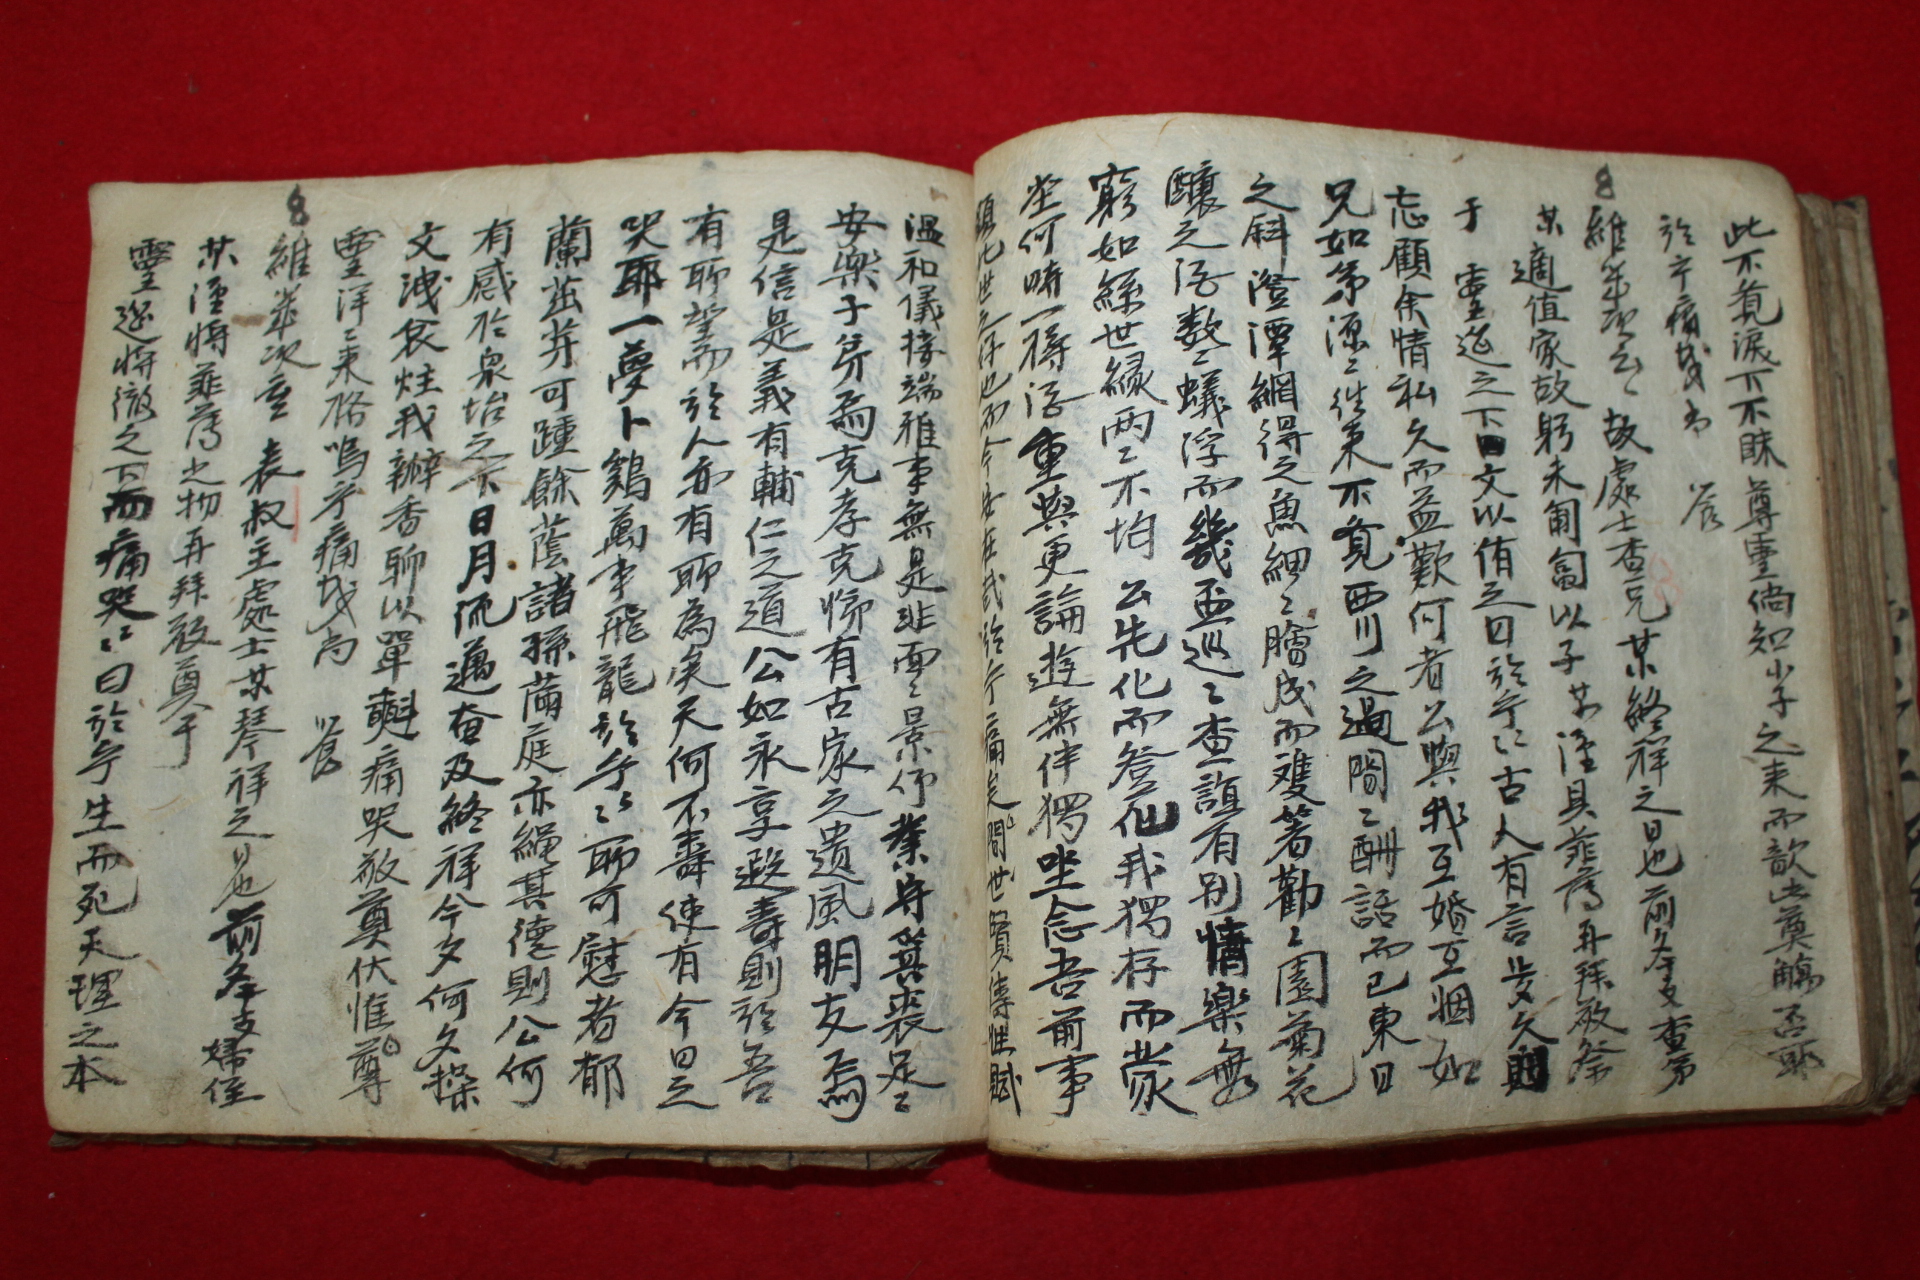 此不覺淚下不昧 尊靈倘知小子之來而歆此奠觴否耶
於乎痛哉尙 饗
8
維歲次云云 故處士查兄某終祥之日也 前冬支查弟
某適值家故躬未匍匐以子某謹具菲薄再拜敬祭
于 靈筵之下曰文以侑之曰於乎古人有言步久則
忘顧余情私久而益歎何者公與我互婚互姻如
兄如弟源源往來不覺西川之過間間酬語而已東日
之斜澄潭網得之魚細細膾成而雙箸勸勸園菊花
釀之浮數數蟻浮而幾盃巡巡查誼有別情樂無
窮如絲世緣兩兩不均 公先化而登仙我獨存而蒙
坐何時一樽浮重與更論遊無伴獨坐念吾前事
也而今 於乎痛矣 間世賢傳性賦
溫和儀捿端雅事無是非面面景仰業守箕裘足足
安樂子弟焉克孝克悌有古家之遺風朋友焉
是信是義有輔仁之道公如永享遐壽則於吾
有聊望而於人亦有聊為矣天何不壽使有今日之
哭耶一夢卜鷄萬事飛龍於乎聊可慰者郁
蘭茁芽可踵餘蔭諸孫繭庭亦繩其德則公何
有感於泉坮之下日月流邁奄及終祥今夕何夕搽
文洩哀炷我瓣香聊以單 痛哭敬奠伏惟尊
靈洋洋來格嗚乎痛哉尚 饗
8
維歲次云 表叔主處士某琴祥之日也前冬支婦侄
某謹將菲薄之物再拜敬奠于
靈筵將徹之下而痛哭曰於乎生而死天理之本